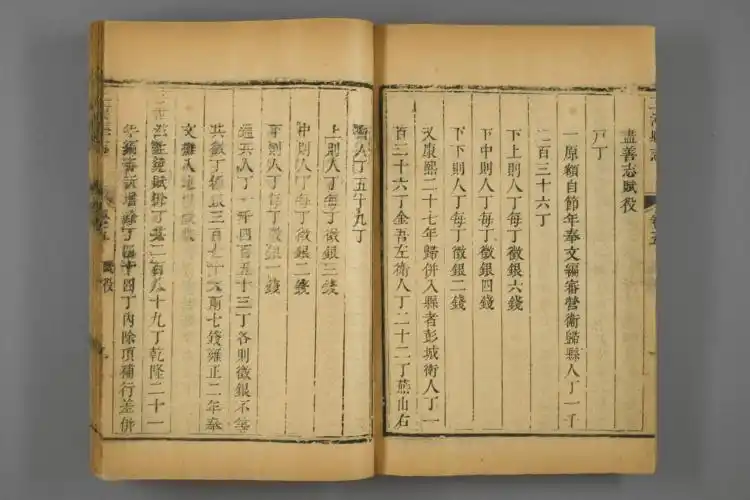 盡善志賦役
戶丁
一原額自節年奉文編審營衛歸縣人丁一千
二百三十六丁
下上則人丁每丁徵銀六錢
下中則人丁每丁徵銀四錢
下下則人丁每丁徵銀二錢
又康熙二十七年歸併入縣者彭城衛人丁一
百三十六丁金吾左衛人丁二十二丁燕山右
衛人丁五十九丁
上則人丁每丁徵銀三錢
中則人丁每丁徵銀二錢
下則人丁每丁徵銀一錢
通共人丁一千四百五十三丁各則徵銀不等
共徵丁銀三百七十兩七錢雍正二年奉
文攤入地
賦役
二百八十九丁乾隆二十一
年編審新增丁四十四丁內除頂補行差併